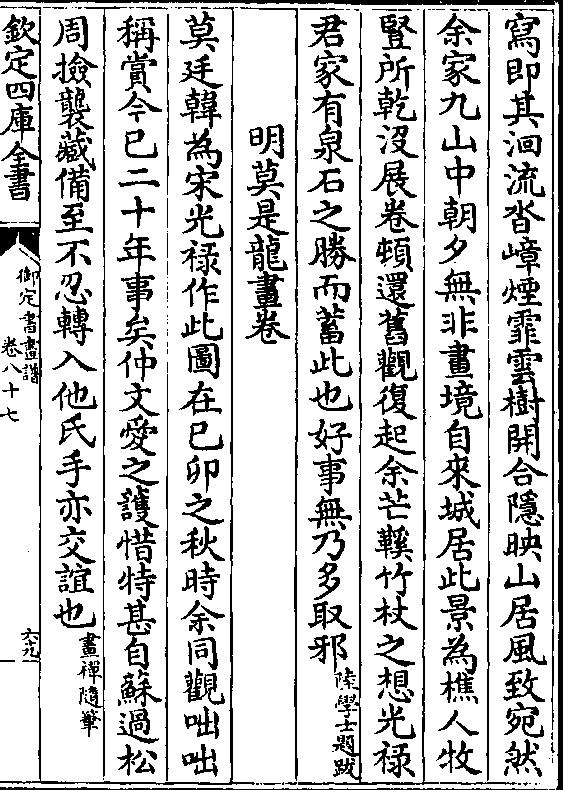 寫即其洄流沓嶂煙霏雲樹開合隱映山居風致宛然
余家九山中朝夕無非畫境自來城居此景為樵人牧
豎所乾没展卷頓還舊觀復起余芒鞵竹杖之想光禄
君家有泉石之勝而蓄此也好事無乃多取邪陸學士題跋
明莫是龍畫卷
莫廷韓為宋光禄作此圖在己卯之秋時余同觀咄咄
稱賞今已二十年事矣仲文愛之護惜特甚自蘇過松
周撿襲藏備至不忍轉入他氏手亦交誼也畫禪隨筆
欽定四庫全書
御定書畫譜
卷八十七
六九